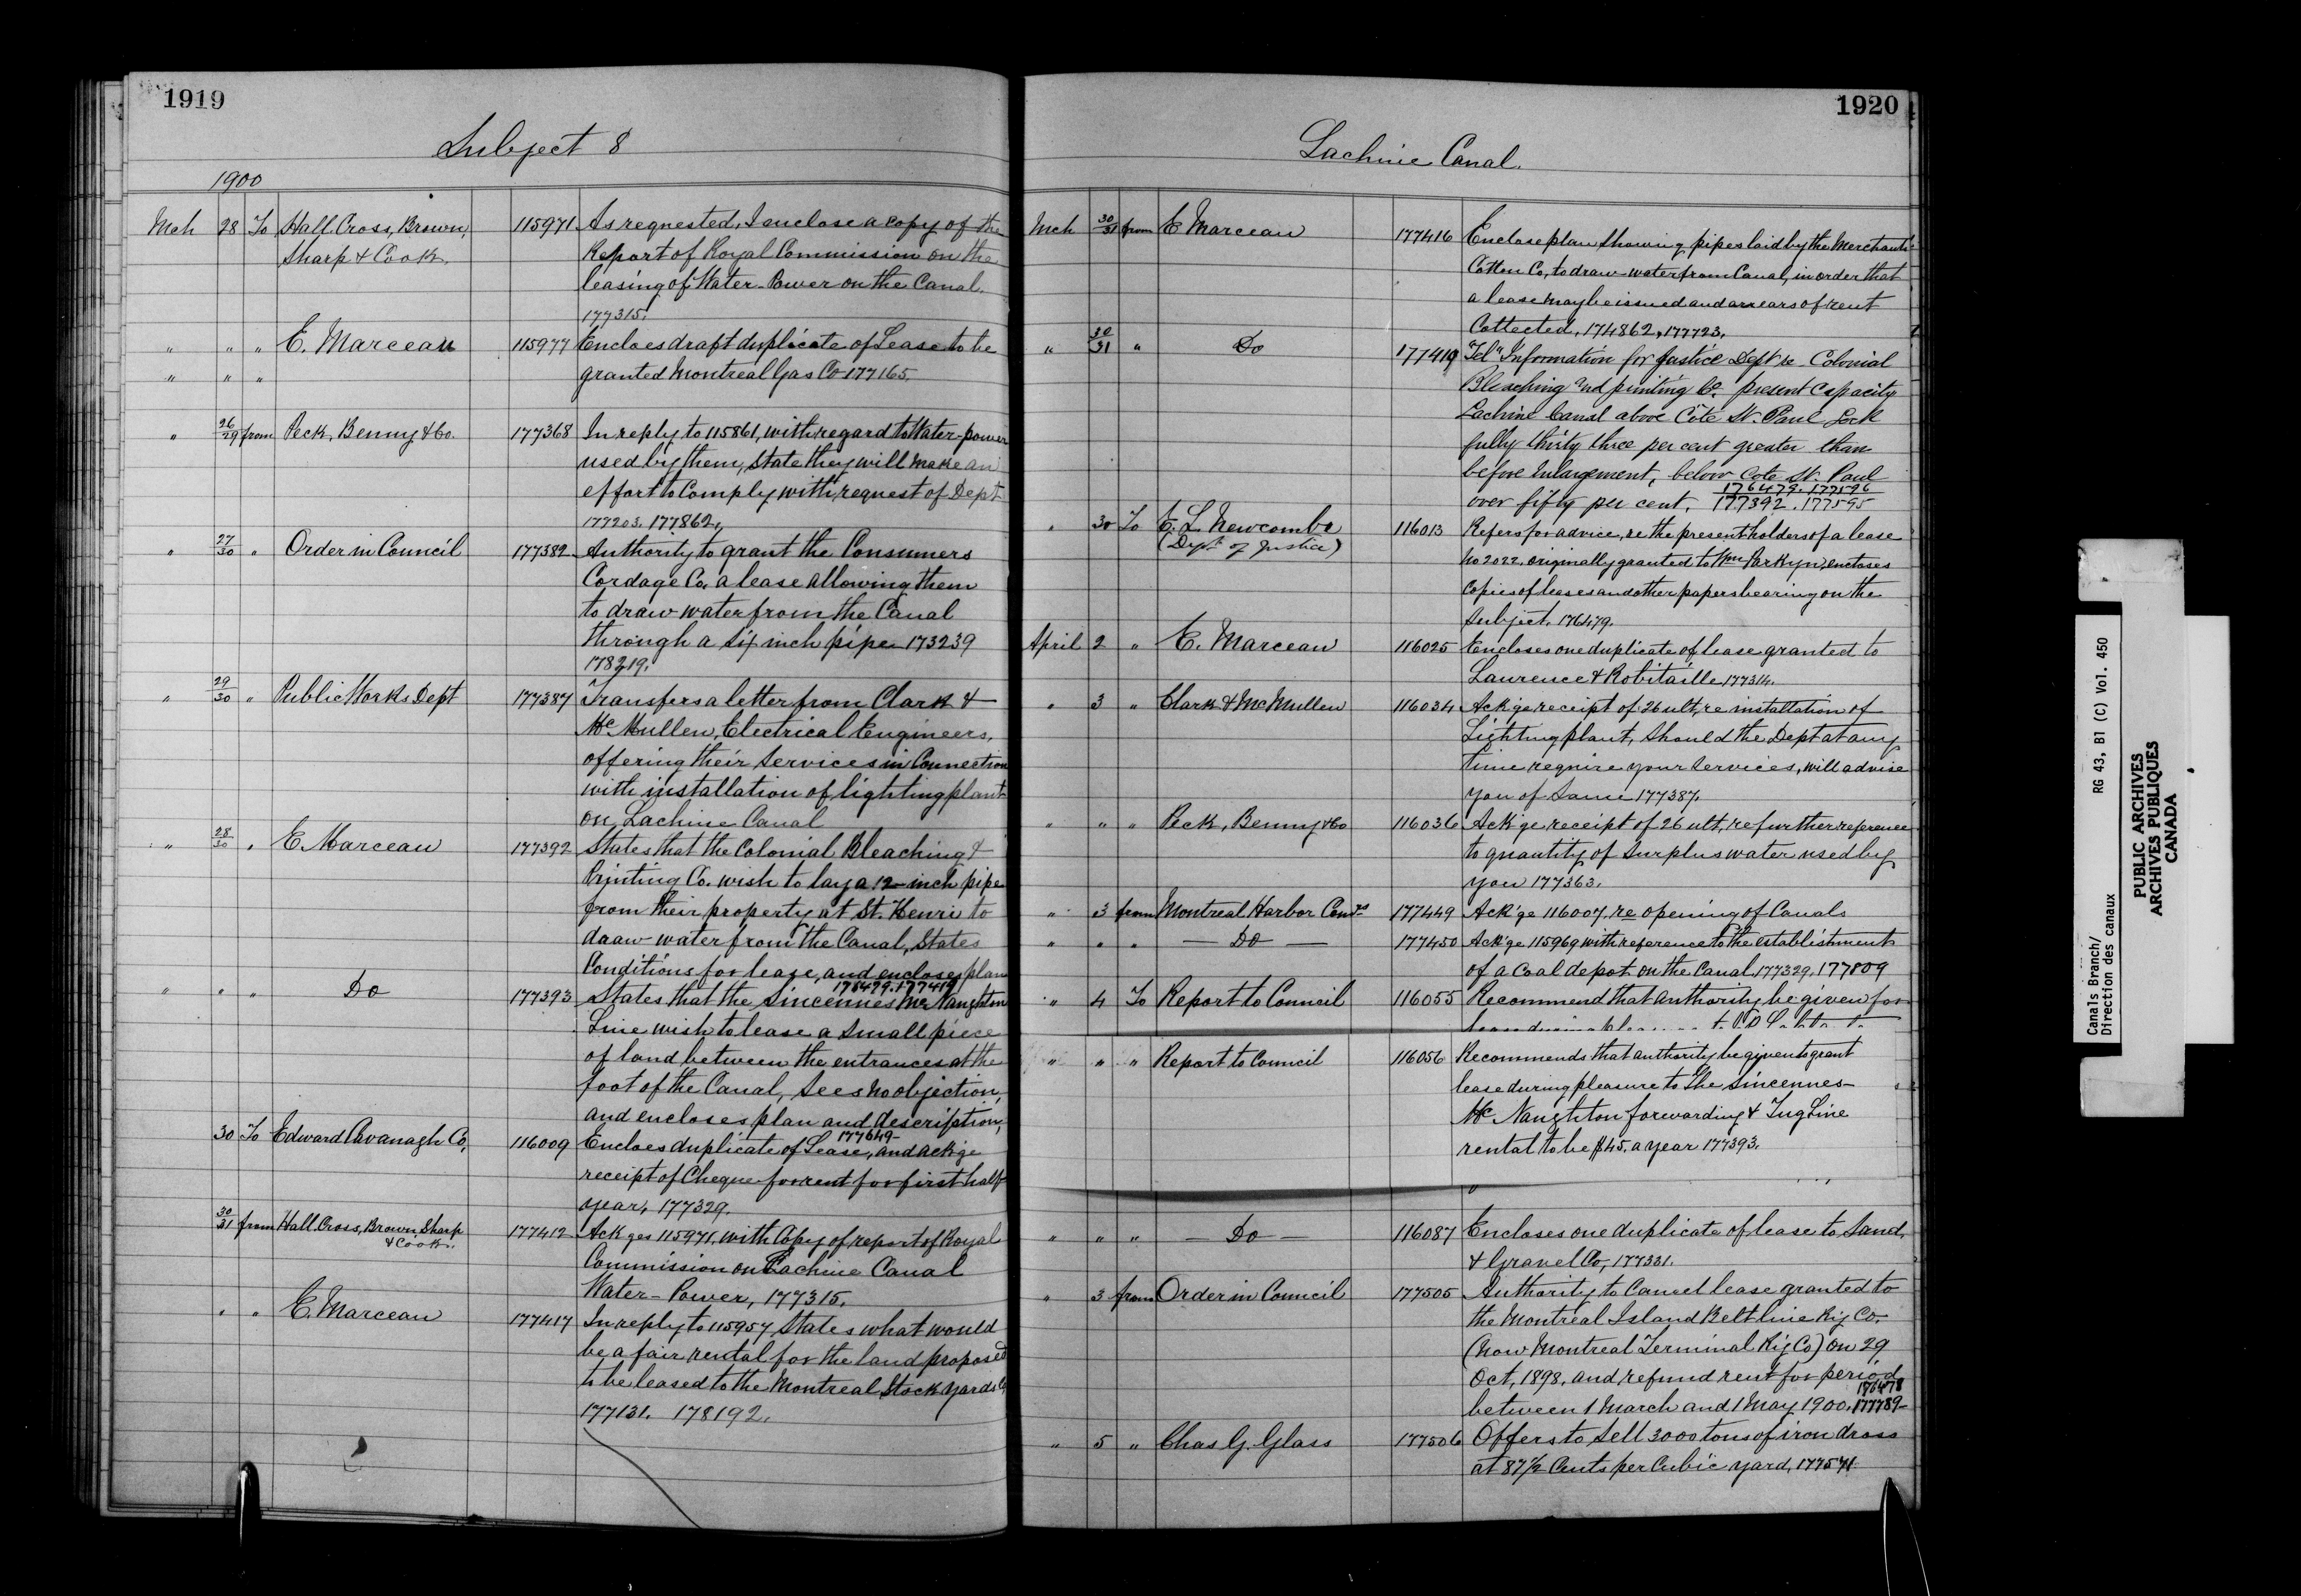 1919
Subject 8
1900
Mch 28 To Hall, Cross, Brown, 115971 As requested, I enclose a copy of the
Sharp & Cook. Report of Royal Commission on the
leasing of Water-Power on the Canal.
177315.
" " " E. Marceau 115977 Encloes draft duplicate of Lease to be
" " " granted Montreal Gas Co 177165.
" 26/29 from Peck, Benny & Co. 177368 In reply to 115861, with regard to Water-power
used by them, State they will make an
effort to Comply with request of Dept
177203. 177862.
" 27/30 " Order in Council 177382 Authority to grant the Consumers
Cordage Co. a lease allowing them
to draw water from the Canal
through a six inch pipe 173239
178219.
" 29/30 " Public Works Dept 177387 Transfers a letter from Clark &
McMullen, Electrical Engineers,
offering their Services in Connection
with installation of lighting plant
on Lachine Canal
" 28/30 " E. Marceau 177392 States that the Colonial Bleaching &
Printing Co. wish to lay a 12-inch pipe
from their property at St. Henri to
draw water from the Canal, States
Conditions for lease, and encloses plan
176479. 177419
" " " Do 177393 States that the Sincennes McNaughton
Line wish to lease a Small piece
of land between the entrances at the
foot of the Canal, Sees no objection,
and encloses plan and description,
177649
30 To Edward Cavanagh Co, 116009 Encloes duplicate of Lease, and ack'ge
receipt of Cheque for rent for first half
year, 177329.
30/31 from Hall, Cross, Brown, Sharp 177412 Ack'ges 115971, with Copy of report of Royal
& Cook. Commission on Lachine Canal
Water-Power, 177315.
" " E. Marceau 177417 In reply to 115957, States what would
be a fair rental for the land proposed
to be leased to the Montreal Stock Yards Co
177131. 178192.
1920
Lachine Canal.
Mch 30/31 from E Marceau 177416 Enclose plan showing pipes laid by the Merchants
Cotton Co, to draw water from Canal, in order that
a lease may be issued and arrears of rent
Collected, 174862, 177723.
" 30/31 " Do 177419 "Tel" Information for Justice Dept re Colonial
Bleaching and printing Co. present Capacity
Lachine Canal above Côte St. Paul Lock
fully thirty three per cent greater than
before Enlargement, below Cote St. Paul
176479. 177596
over fifty per cent, 177392. 177595
" 30 To E. L Newcombe 116013 Refers for advice, re the present holders of a lease
(Dept of Justice) No 2022, originally granted to Wm Parkyn, encloses
Copies of leases and other papers bearing on the
Subject. 176479.
April 2 " E. Marceau 116025 Encloses one duplicate of lease granted to
Laurence & Robitaille 177314.
" 3 " Clark & McMullen 116034 Ack'ge receipt of 26 ult, re installation of
Lighting plant, Should the Dept at any
time require your Services, will advise
you of Same 177387.
" " " Peck, Benny & Co 116036 Ack'ge receipt of 26 ult, re further reference
to quantity of Surplus water used by
you 177363.
" 3 from Montreal Harbor Comrs 177449 Ack'ge 116007, re opening of Canals
" " " — Do — 177450 Ack'ge 115969 with reference to the establishment
of a Coal depot on the Canal 177329, 177809
" 4 To Report to Council 116055 Recommend that authority be given for
" " " Report to Council 116056 Recommends that authority be given to grant
lease during pleasure to The Sincennes-
McNaughton forwarding & Tug Line
rental to be $45. a year 177393.
" " " — Do — 116087 Encloses one duplicate of lease to Sand
& Gravel Co, 177331.
" 3 from Order in Council 177505 Authority to Cancel lease granted to
the Montreal Island Belt line Ry Co.
(Now Montreal Terminal Ry Co) on 29
Oct, 1898, and refund rent for period
176478
between 1 March and 1 May 1900. 177789
" 5 " Chas G. Glass 177506 Offers to Sell 3000 tons of iron dross
at 87½ Cents per Cubic yard, 177571
Canals Branch/
Direction des canaux
RG 43, B1 (C) Vol. 450
PUBLIC ARCHIVES
ARCHIVES PUBLIQUES
CANADA